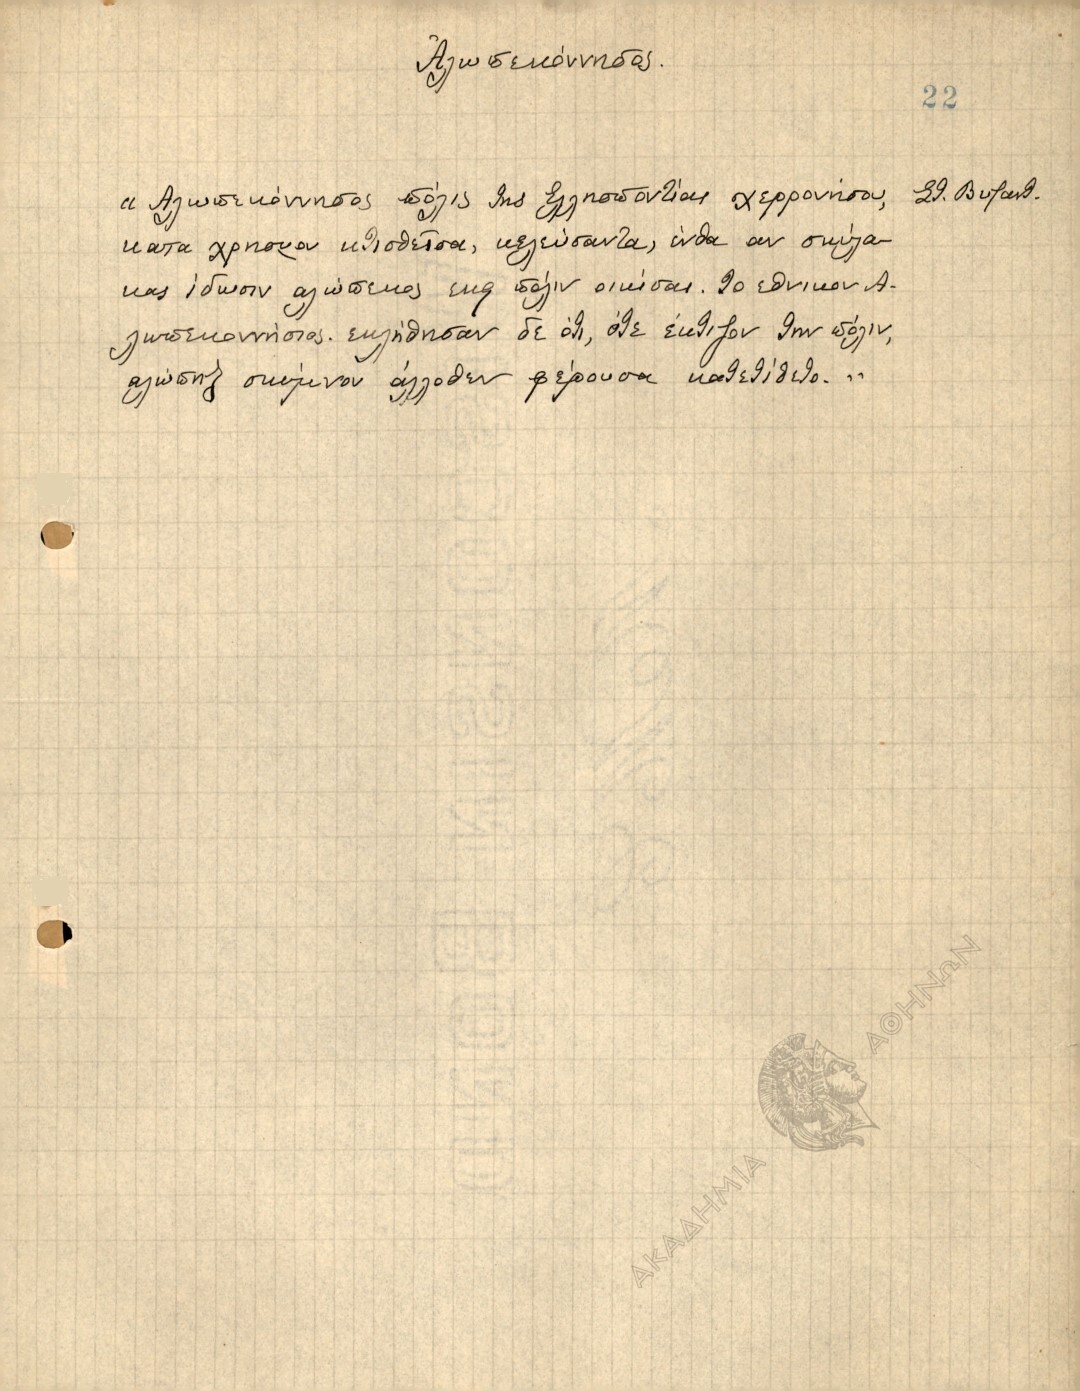 Ἀλωπεκόννησος.
22
« Αλωπεκόννησος πόλις της Ελλησποντίας χερρονήσου, Στ. Βυζαντ.
κατα χρησμον κτισθεῖσα, κελεύσαντα, ένθα αν σκύλα-
κας ίδωσιν αλώπεκος εκεί πόλιν οικίσαι. το εθνικον Α-
λωπεκοννήσιος. εκλήθησαν δε ότι, ότε έκτιζον την πόλιν,
αλώπηξ σκύμνον άλλοθεν φέρουσα κατετίθετο. "
ΑΚΑΔΗΜΙΑ ΑΘΗΝΩΝ